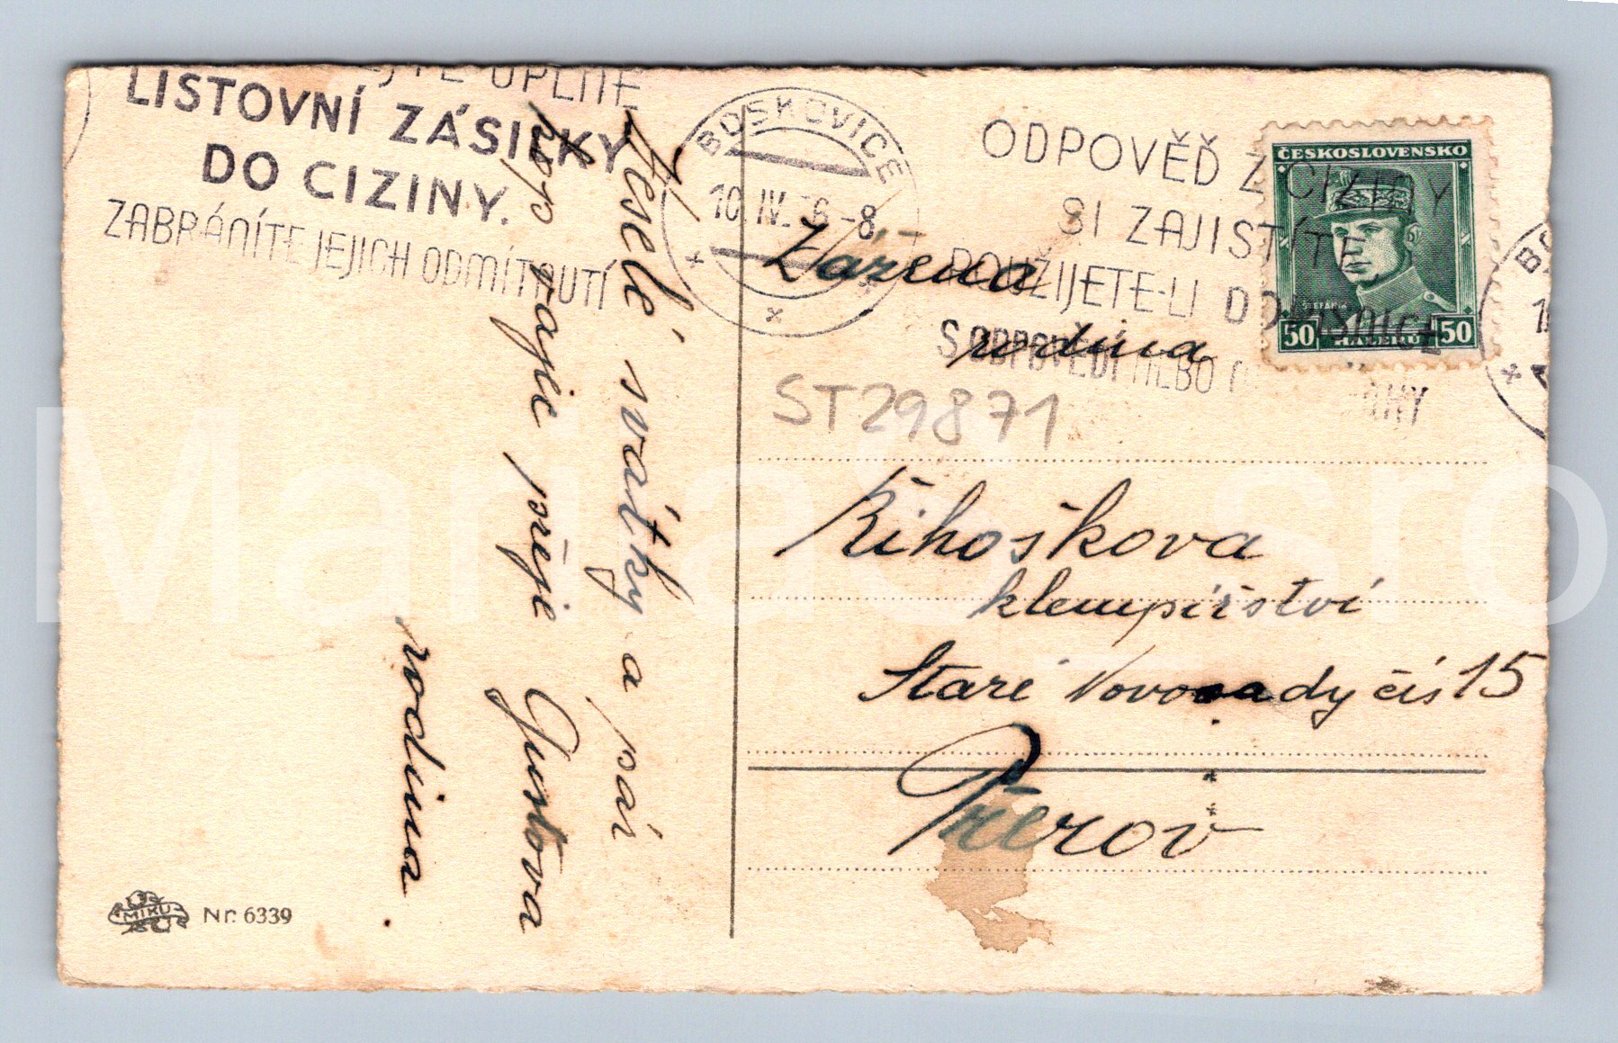 LISTOVNÍ ZÁSILKY
DO CIZINY.
ZABRAŇTE JEJICH ODMÍTNUTÍ
BOSKOVICE
10. IV. 36 -8
ODPOVĚĎ Z CIZINY
SI ZAJISTÍTE
POUŽIJETE-LI DOPISNICE
S ODPOVĚDÍ NEBO
ČESKOSLOVENSKO
ŠTEFÁNIK
50 HALÉŘŮ 50
Veselé svátky a
přeje Gustova
rodina.
Vážená
rodina
ST29871
Řihoškova
klempířství
Staré Novosady čís 15
Přerov
MIKU
Nr. 6339